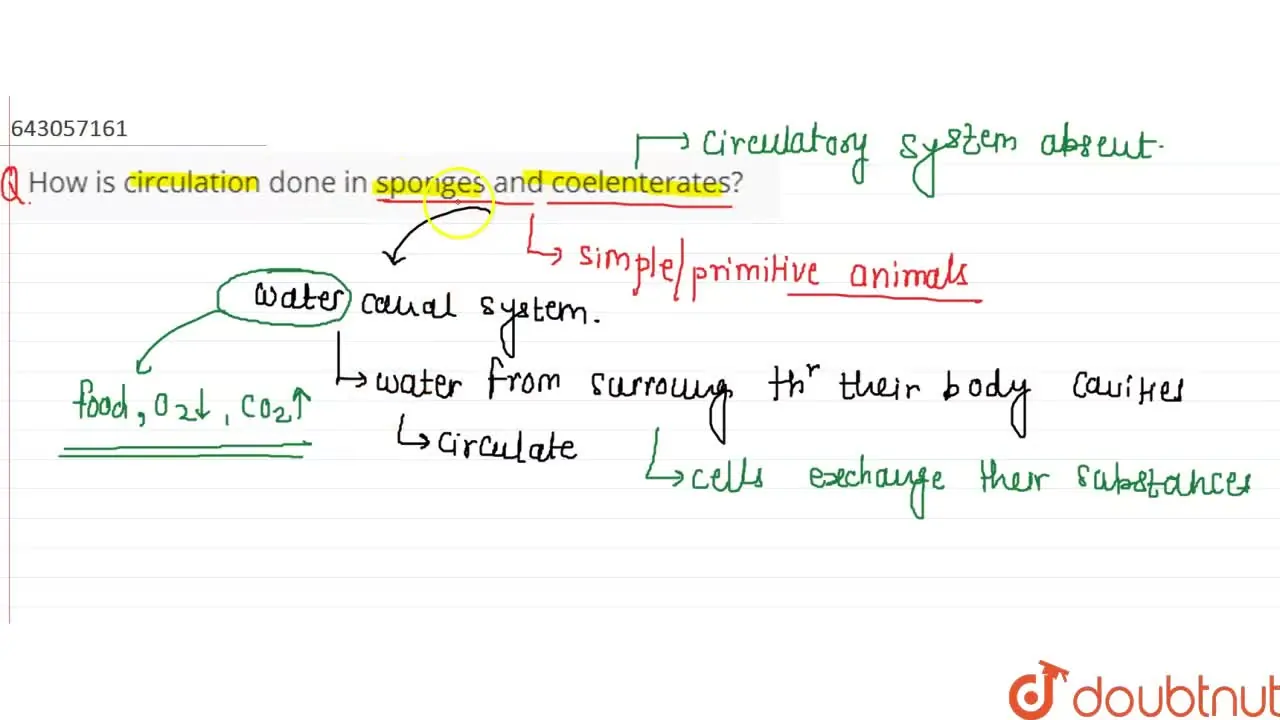 643057161
circulatory system absent.
Q. How is circulation done in sponges and coelenterates?
simple/primitive animals
water canal system.
water from surroung thr their body cavities
food, O2↓, CO2↑
circulate
cells exchange their substances
doubtnut